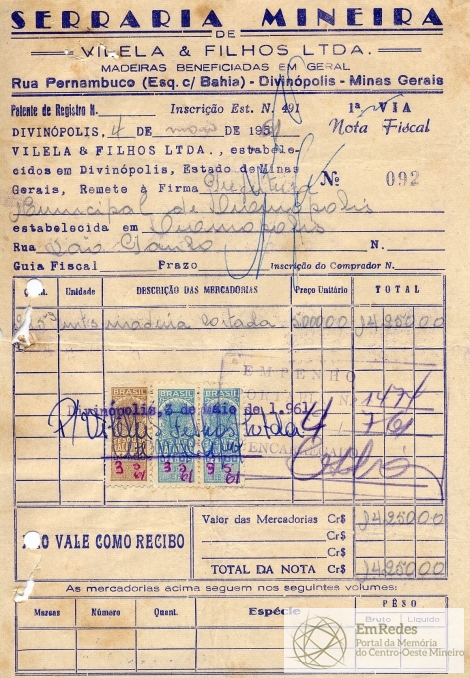 SERRARIA MINEIRA
DE
VILELA & FILHOS LTDA.
MADEIRAS BENEFICIADAS EM GERAL
Rua Pernambuco (Esq. c/ Bahia) - Divinópolis - Minas Gerais
Patente de Registro N. Inscrição Est. N. 491 1ª VIA
DIVINÓPOLIS, 4 DE maio DE 1961 Nota Fiscal
VILELA & FILHOS LTDA., estabele-
cidos em Divinópolis, Estado de Minas Nº 092
Gerais, Remete à Firma Prefeitura
Municipal de Divinópolis
estabelecida em Divinópolis
Rua N.
Guia Fiscal Prazo Inscrição do Comprador N.
Quant. Unidade DESCRIÇÃO DAS MERCADORIAS Preço Unitário TOTAL
mts madeira cortada 5000,00 14.250,00
EMPENHO
1474
BRASIL BRASIL BRASIL
Divinópolis, 3 de Maio de 1.961
4 / 7 / 61
3 5 61 3 5 61
VALE COMO RECIBO
Valor das Mercadorias Cr$ 14.250,00
Cr$
Cr$
TOTAL DA NOTA Cr$ 14.250,00
As mercadorias acima seguem nos seguintes volumes:
Marcas Número Quant. Espécie PÊSO
Bruto Líquido
EmRedes
Portal da Memória
do Centro-Oeste Mineiro